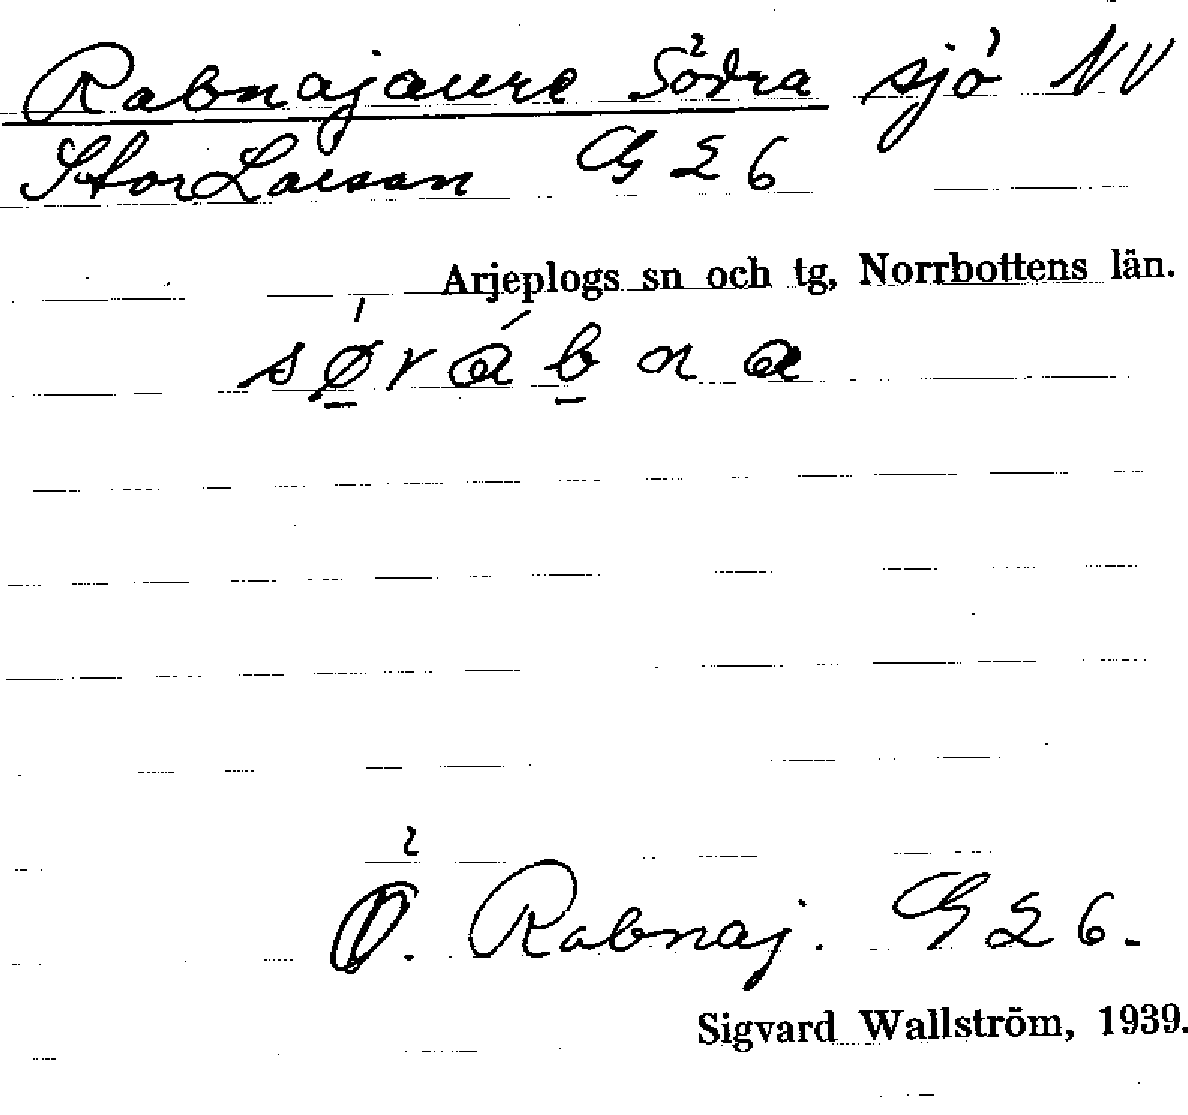 Rabnajaure Södra sjö NV
Stor Laisan G 26
Arjeplogs sn och tg, Norrbottens län.
sǿ̱rábṉa
Ö. Rabnaj. G 26.
Sigvard Wallström, 1939.